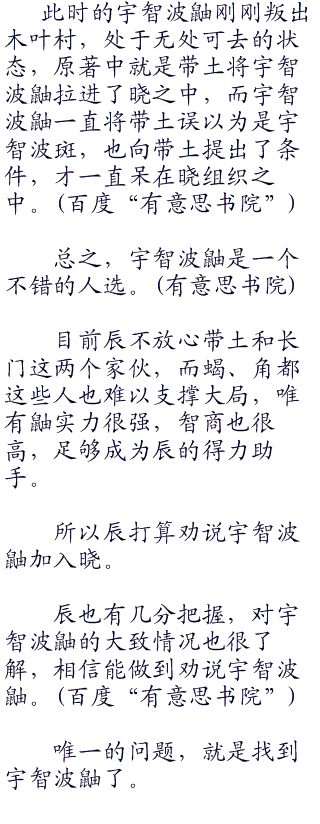 此时的宇智波鼬刚刚叛出
木叶村，处于无处可去的状
态，原著中就是带土将宇智
波鼬拉进了晓之中，而宇智
波鼬一直将带土误以为是宇
智波斑，也向带土提出了条
件，才一直呆在晓组织之
中。(百度“有意思书院”)
总之，宇智波鼬是一个
不错的人选。(有意思书院)
目前辰不放心带土和长
门这两个家伙，而蝎、角都
这些人也难以支撑大局，唯
有鼬实力很强，智商也很
高，足够成为辰的得力助
手。
所以辰打算劝说宇智波
鼬加入晓。
辰也有几分把握，对宇
智波鼬的大致情况也很了
解，相信能做到劝说宇智波
鼬。(百度“有意思书院”)
唯一的问题，就是找到
宇智波鼬了。